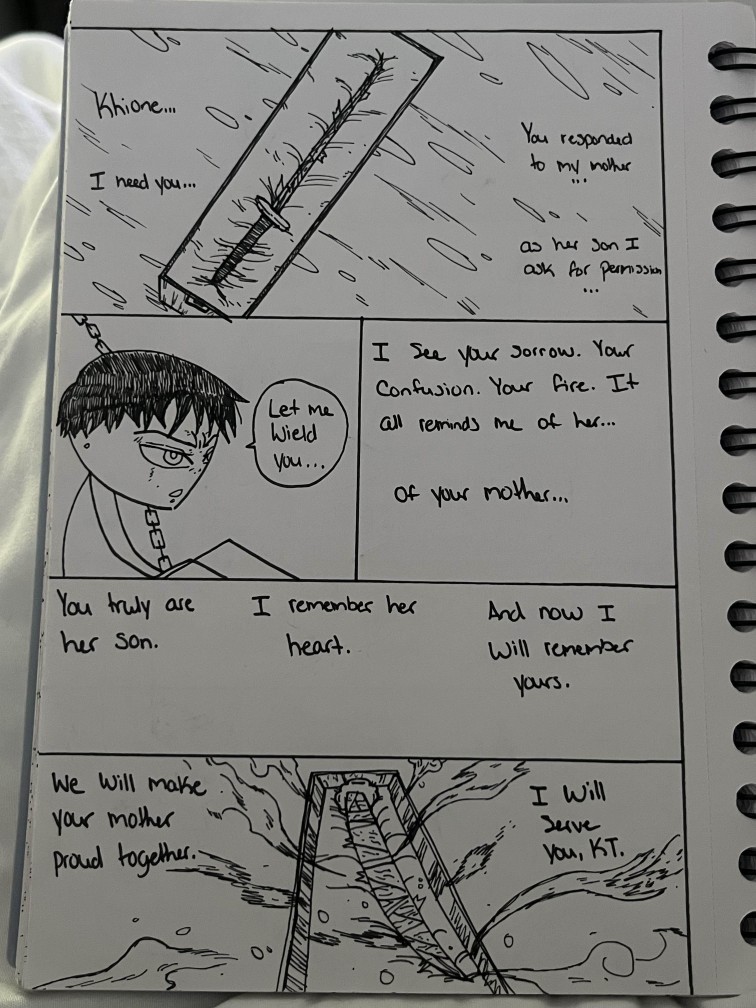 Khione...
I need you...
You responded
to my mother
...
as her son I
ask for permission
...
Let me
Wield
you...
I see your sorrow. Your
Confusion. Your fire. It
all reminds me of her...
Of your mother...
You truly are
her son.
I remember her
heart.
And now I
will remember
yours.
We will make
your mother
proud together.
I will
serve
you, KT.